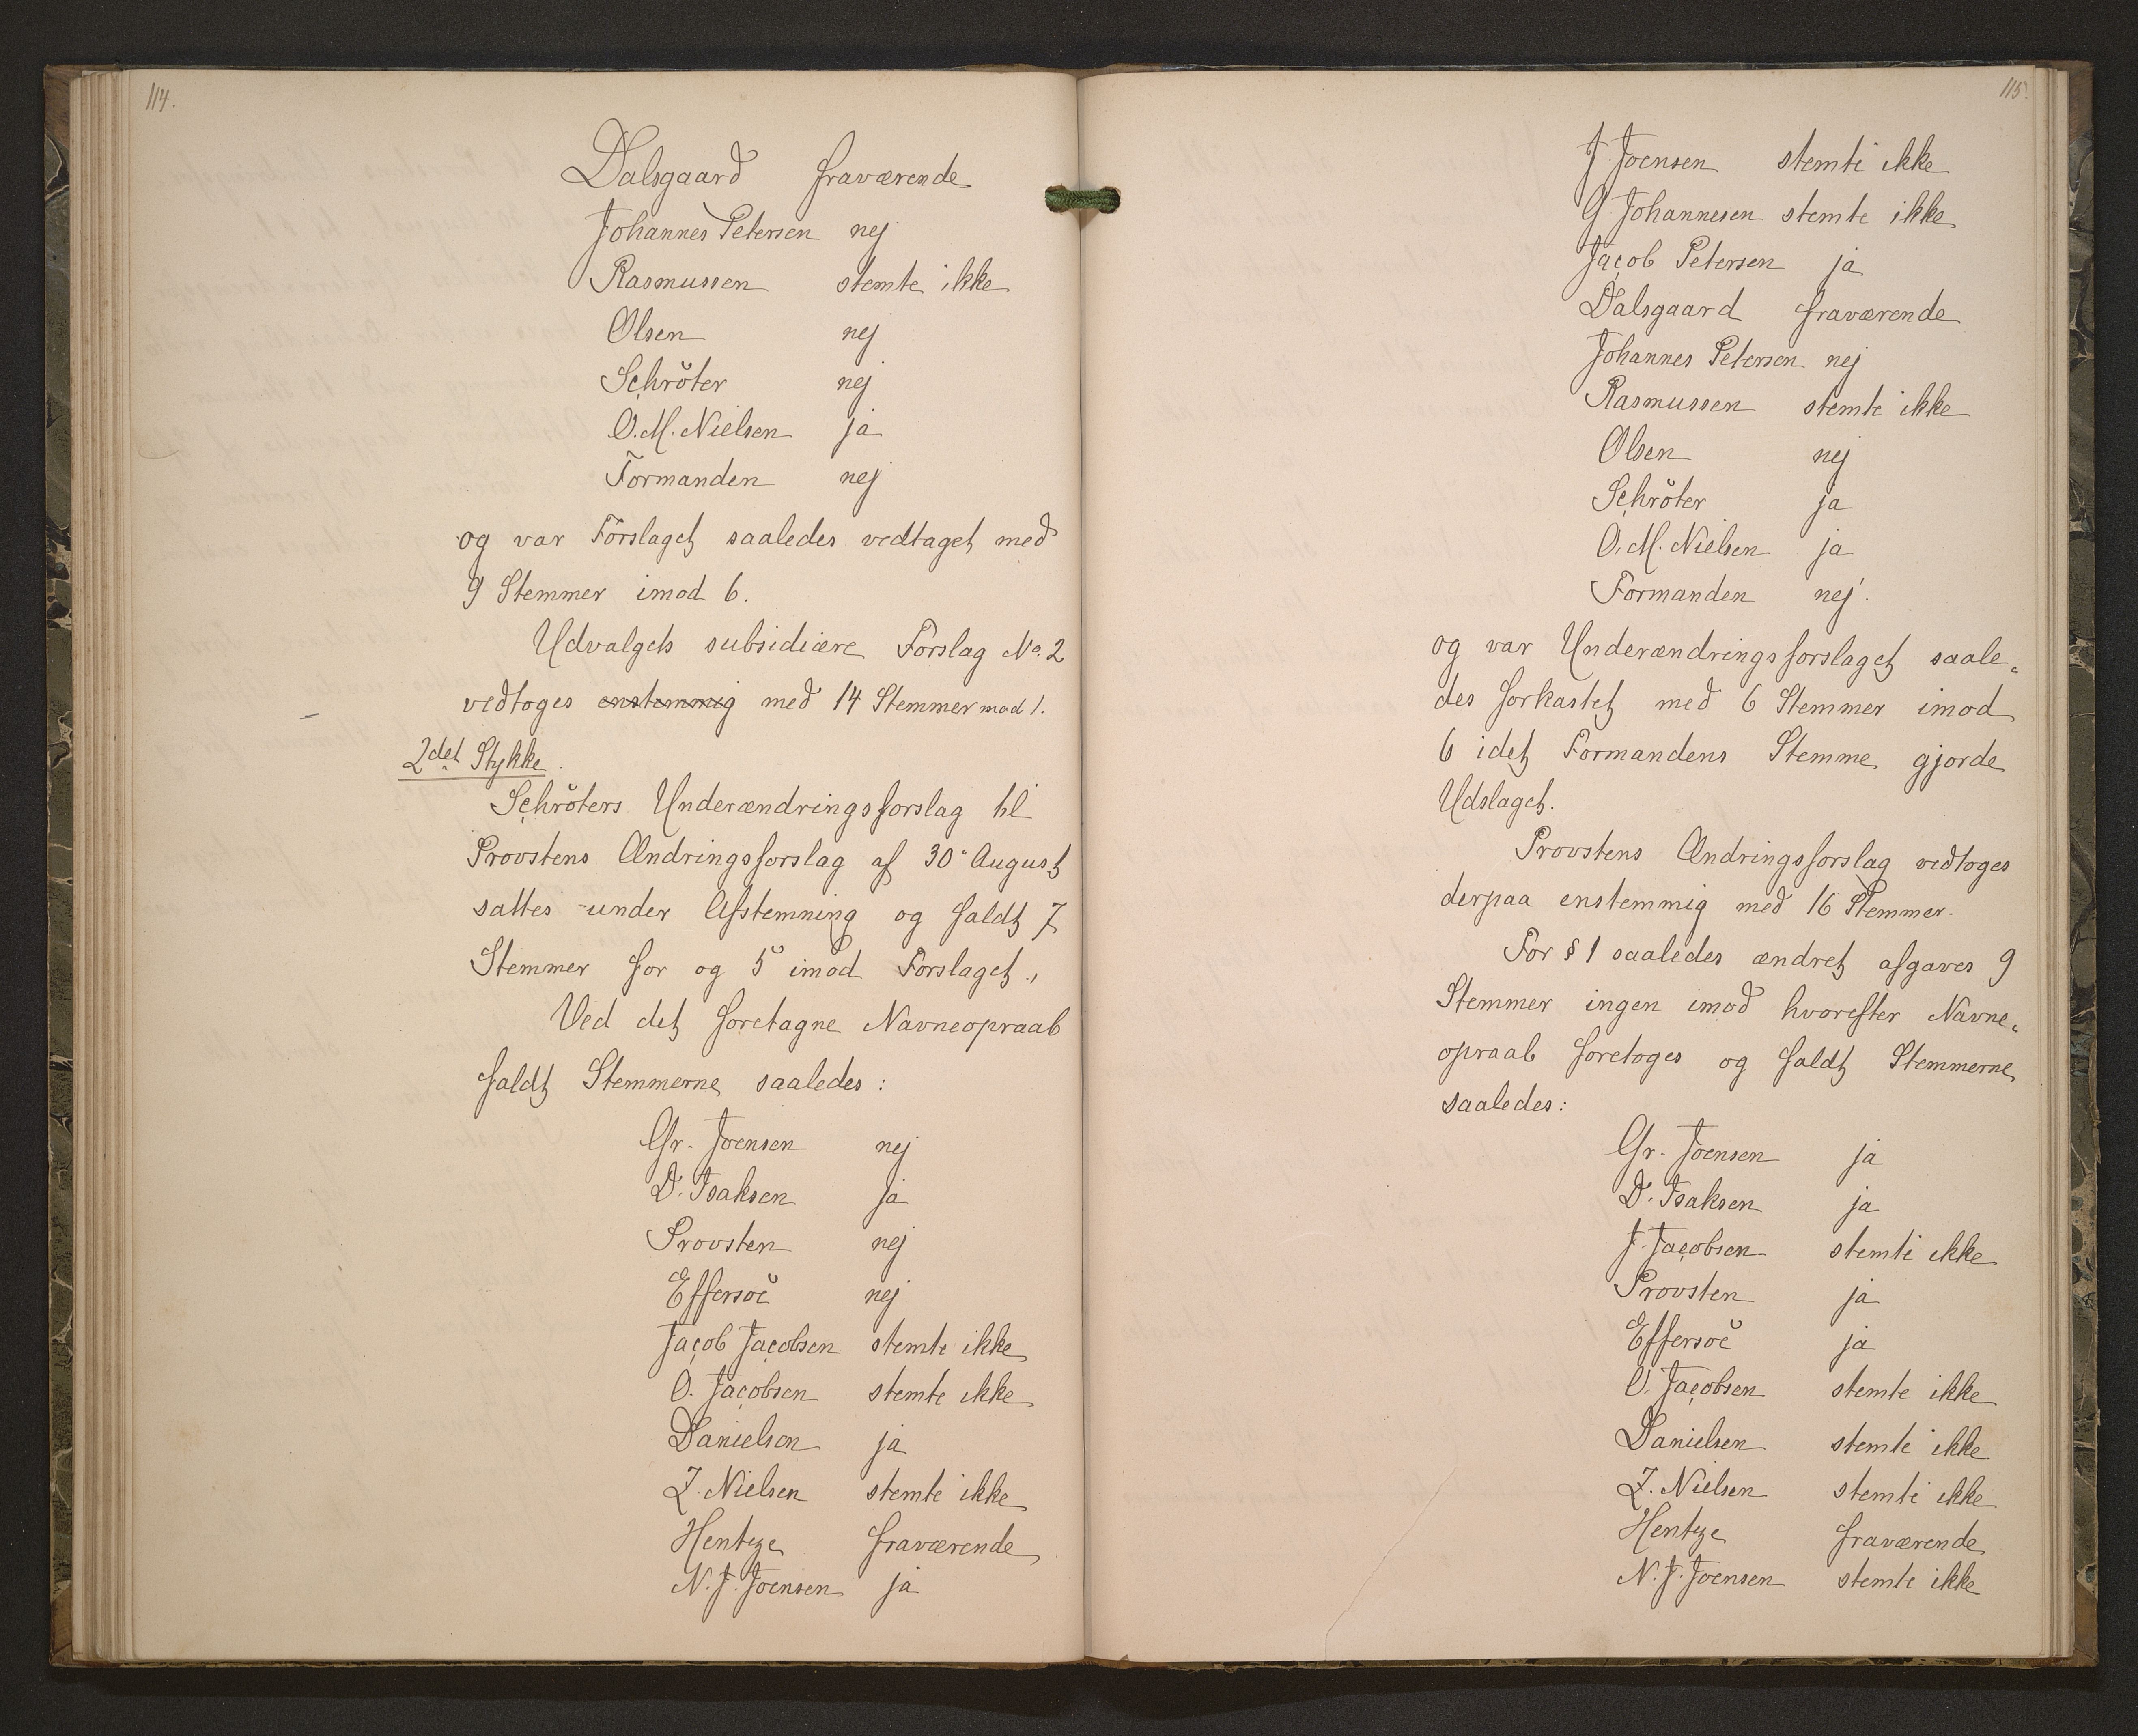 114.
Dalsgaard fraværende
Johannes Petersen nej
Rasmussen stemte ikke
Olsen nej
Schröter nej
O. M. Nielsen ja
Formanden nej
og var Forslaget saaledes vedtaget med
9 Stemmer imod 6.
Udvalgets subsidiære Forslag No. 2
vedtoges enstemmig med 14 Stemmer mod 1.
2det Stykke.
Schröters Underændringsforslag til
Provstens Ændringsforslag af 30' August
sattes under Afstemning og faldt 7
Stemmer for og 5 imod Forslaget.,
Ved det foretagne Navneopraab
faldt Stemmerne saaledes:
Gr. Joensen nej
D. Isaksen ja
Provsten nej
Effersöe nej
Jacob Jacobsen stemte ikke
O. Jacobsen stemte ikke
Danielsen ja
Z. Nielsen stemte ikke
Hentze fraværende
N. J. Joensen ja
115.
J. Joensen stemte ikke
G. Johannesen stemte ikke
Jacob Petersen ja
Dalsgaard fraværende
Johannes Petersen nej
Rasmussen stemte ikke
Olsen nej
Schröter ja
O. M. Nielsen ja
Formanden nej.
og var Underændringsforslaget saale„
des forkastet med 6 Stemmer imod
6 idet Formandens Stemme gjorde
Udslaget.
Provstens Ændringsforslag vedtoges
derpaa enstemmig med 16 Stemmer.
For § 1 saaledes ændret afgaves 9
Stemmer ingen imod hvorefter Navne„
opraab foretoges og faldt Stemmerne
saaledes:
Gr. Joensen ja
D. Isaksen ja
J. Jacobsen stemte ikke
Provsten ja
Effersöe ja
O. Jacobsen stemte ikke
Danielsen stemte ikke
Z. Nielsen stemte ikke
Hentze fraværende
N. J. Joensen stemte ikke